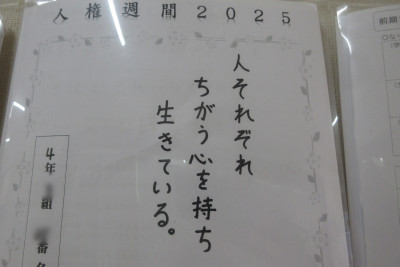 人権週間2025
人それぞれ
ちがう心を持ち
生きている。
4年 組 番
前期